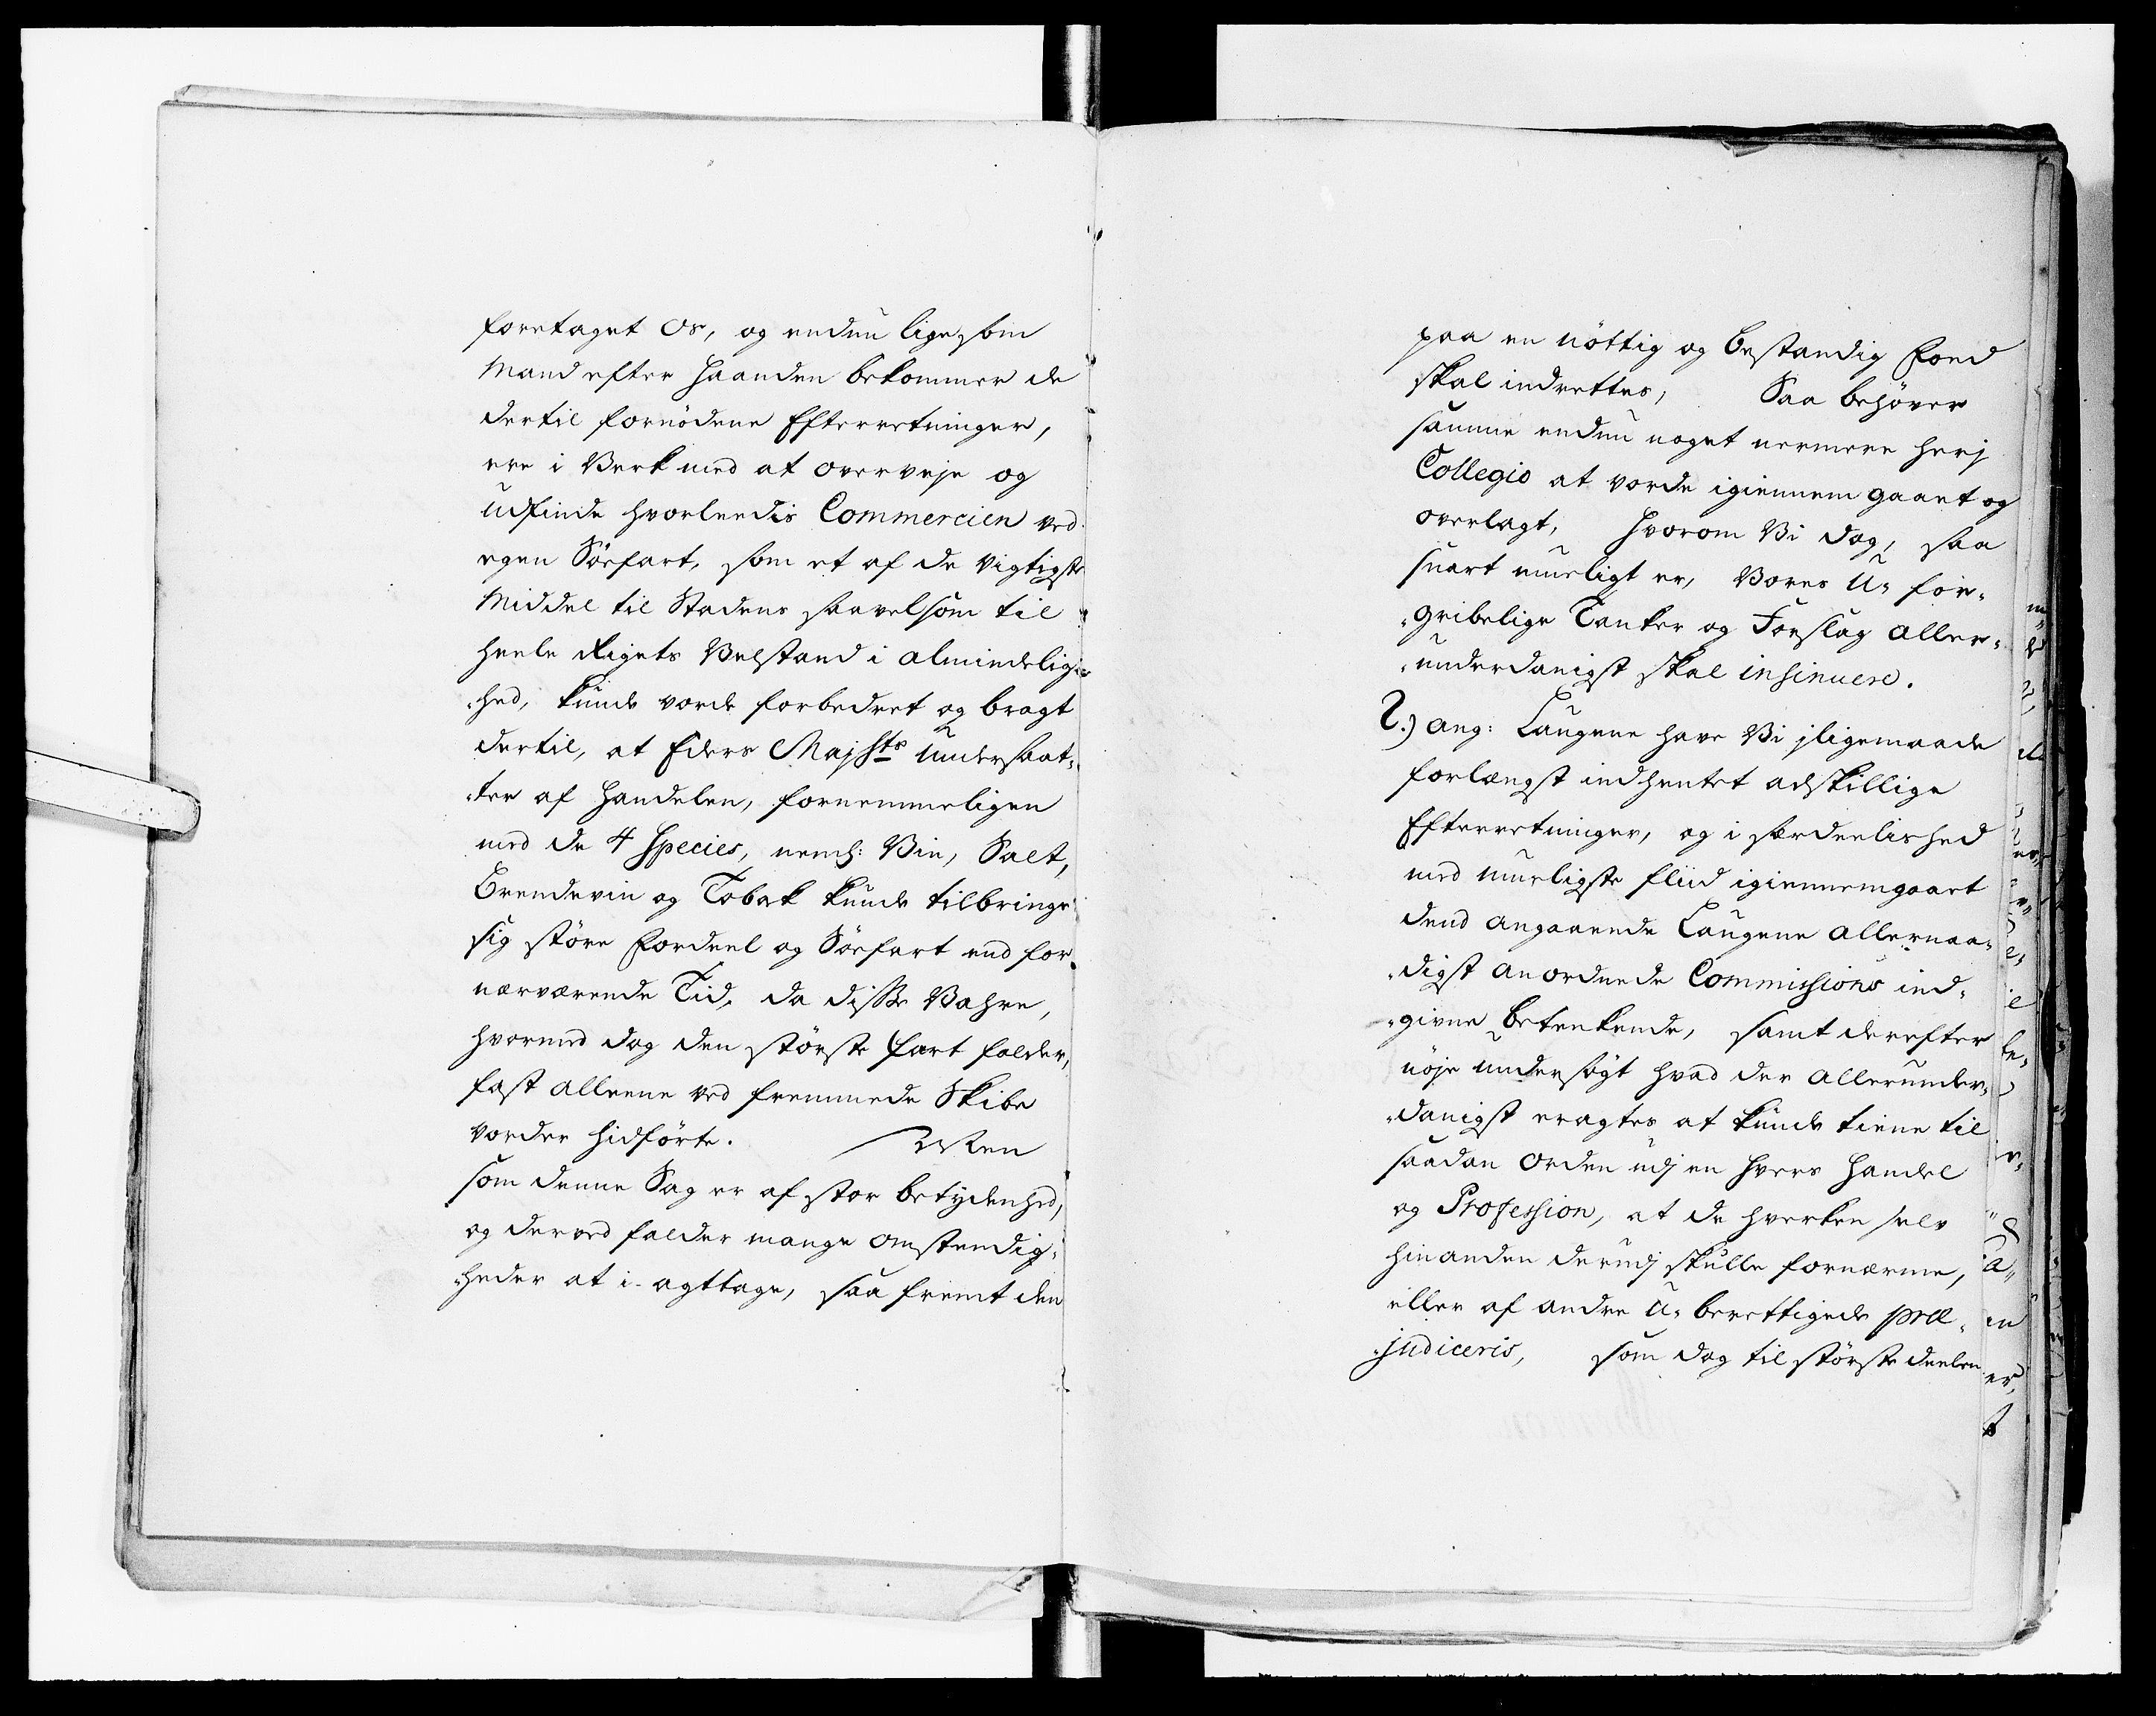 foretaget Os, og endnu ligesom
Mand efter Haanden bekommer de
dertil fornödene Efterretninger,
ere i Verk med at overveje og
udfinde hvorleedis Commercien ved
egen Söefart, som et af de vigtigste
Middel til Stadens saavelsom til
heele Rigets Velstand i almindelig¬
hed, kunde vorde forbedret og bragt
dertil, at Eders Majsts Undersaat¬
ter af Handelen, fornemmeligen
med de 4 Species, neml: Vin, Salt,
Brendevin og Tobak kunde tilbringe
sig större Fordeel og Söefart end for
nærværende Tid, da disse Vahre,
hvormed dog den störste fart falder,
fast alleene ved fremmede Skibe
vorder hidförte. Men
som denne Sag er af stor betydenhed,
og derved falder mange omstendig¬
heder at i-agttage, saa fremt den
paa en nöttig og bestandig Foed
skal indrettes, Saa behöver
samme endnu noget nermere herj
Collegio at vorde igiennem gaaet og
overlagt, hvorom Vi dog, saa
snart mueligt er, Vores U- for¬
gribelige Tanker og Forslag aller¬
underdanigst skal insinuere.
2.) ang: Laugene have Vi jligemaade
forlængst indhentet adskillige
Efterretninger, og i særdeelished
med mueligste fliid igiennemgaaet
dend angaaende Laugene allernaa¬
digst anordnede Commissions ind¬
givne Betenkende, samt derefter
nöje undersögt hvad der allerunder¬
danigst eragtes at kunde tiene til
saadan Orden udj en hvers Handel
og Profession, at de hverken selv
hinanden derudj skulle fornærme,
eller af andre U- berettigede præ¬
judiceris, som dog til störste deelen